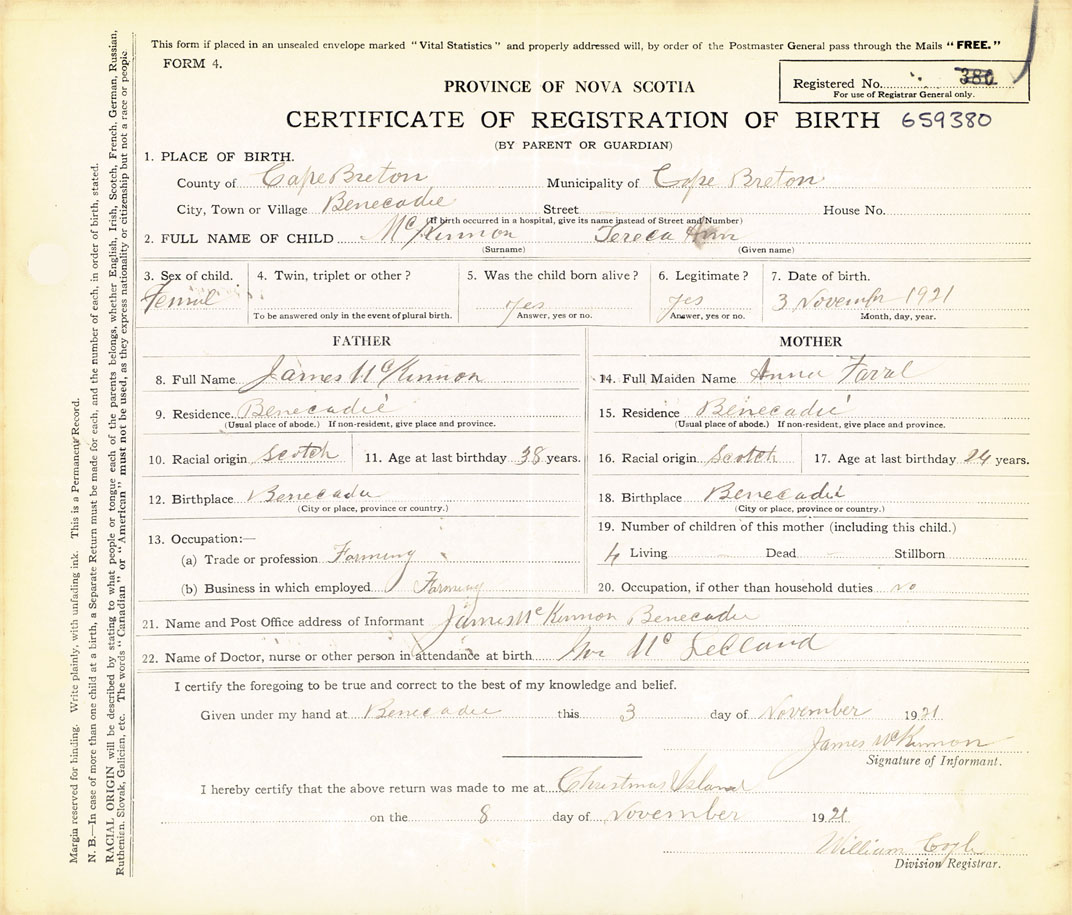 This form if placed in an unsealed envelope marked "Vital Statistics" and properly addressed will, by order of the Postmaster General pass through the Mails "FREE."
FORM 4.
Registered No. 380
For use of Registrar General only.
PROVINCE OF NOVA SCOTIA
CERTIFICATE OF REGISTRATION OF BIRTH 659380
(BY PARENT OR GUARDIAN)
1. PLACE OF BIRTH.
County of Cape Breton Municipality of Cape Breton
City, Town or Village Benecadie Street House No.
(If birth occurred in a hospital, give its name instead of Street and/Number)
2. FULL NAME OF CHILD McKinnon Tereca Ann
(Surname) (Given name)
3. Sex of child. 4. Twin, triplet or other? 5. Was the child born alive? 6. Legitimate? 7. Date of birth.
Femal yes yes 3 November 1921
To be answered only in the event of plural birth. Answer, yes or no. Answer, yes or no. Month, day, year.
FATHER
8. Full Name James McKinnon
9. Residence. Benecadie
(Usual place of abode.) If non-resident, give place and province.
10. Racial origin Scotch 11. Age at last birthday 38 years.
12. Birthplace Benecadie
(City or place, province or country.)
13. Occupation:—
(a) Trade or profession Farming
(b) Business in which employed Farming
MOTHER
14. Full Maiden Name Anna
15. Residence Benecadie
(Usual place of abode.) If non-resident, give place and province.
16. Racial origin Scotch 17. Age at last birthday 24 years.
18. Birthplace Benecadie
(City or place, province or country.)
19. Number of children of this mother (including this child.)
4 Living — Dead — Stillborn
20. Occupation, if other than household duties no
21. Name and Post Office address of Informant James McKinnon Benecadie
22. Name of Doctor, nurse or other person in attendance at birth Mc Lelland
I certify the foregoing to be true and correct to the best of my knowledge and belief.
Given under my hand at Benecadie this 3 day of November 1921
James McKinnon
Signature of Informant.
I hereby certify that the above return was made to me at Christmas Island
on the 8 day of November 1921
William
Division Registrar.
Margin reserved for binding. Write plainly, with unfading ink. This is a Permanent Record.
N. B.—In case of more than one child at a birth, a Separate Return must be made for each, and the number of each, in order of birth, stated.
RACIAL ORIGIN will be described by stating to what people or tongue each of the parents belongs, whether English, Irish, Scotch, French, German, Russian,
Ruthenien, Slovak, Galician, etc. The words "Canadian" or "American" must not be used, as they express nationality or citizenship but not a race or people